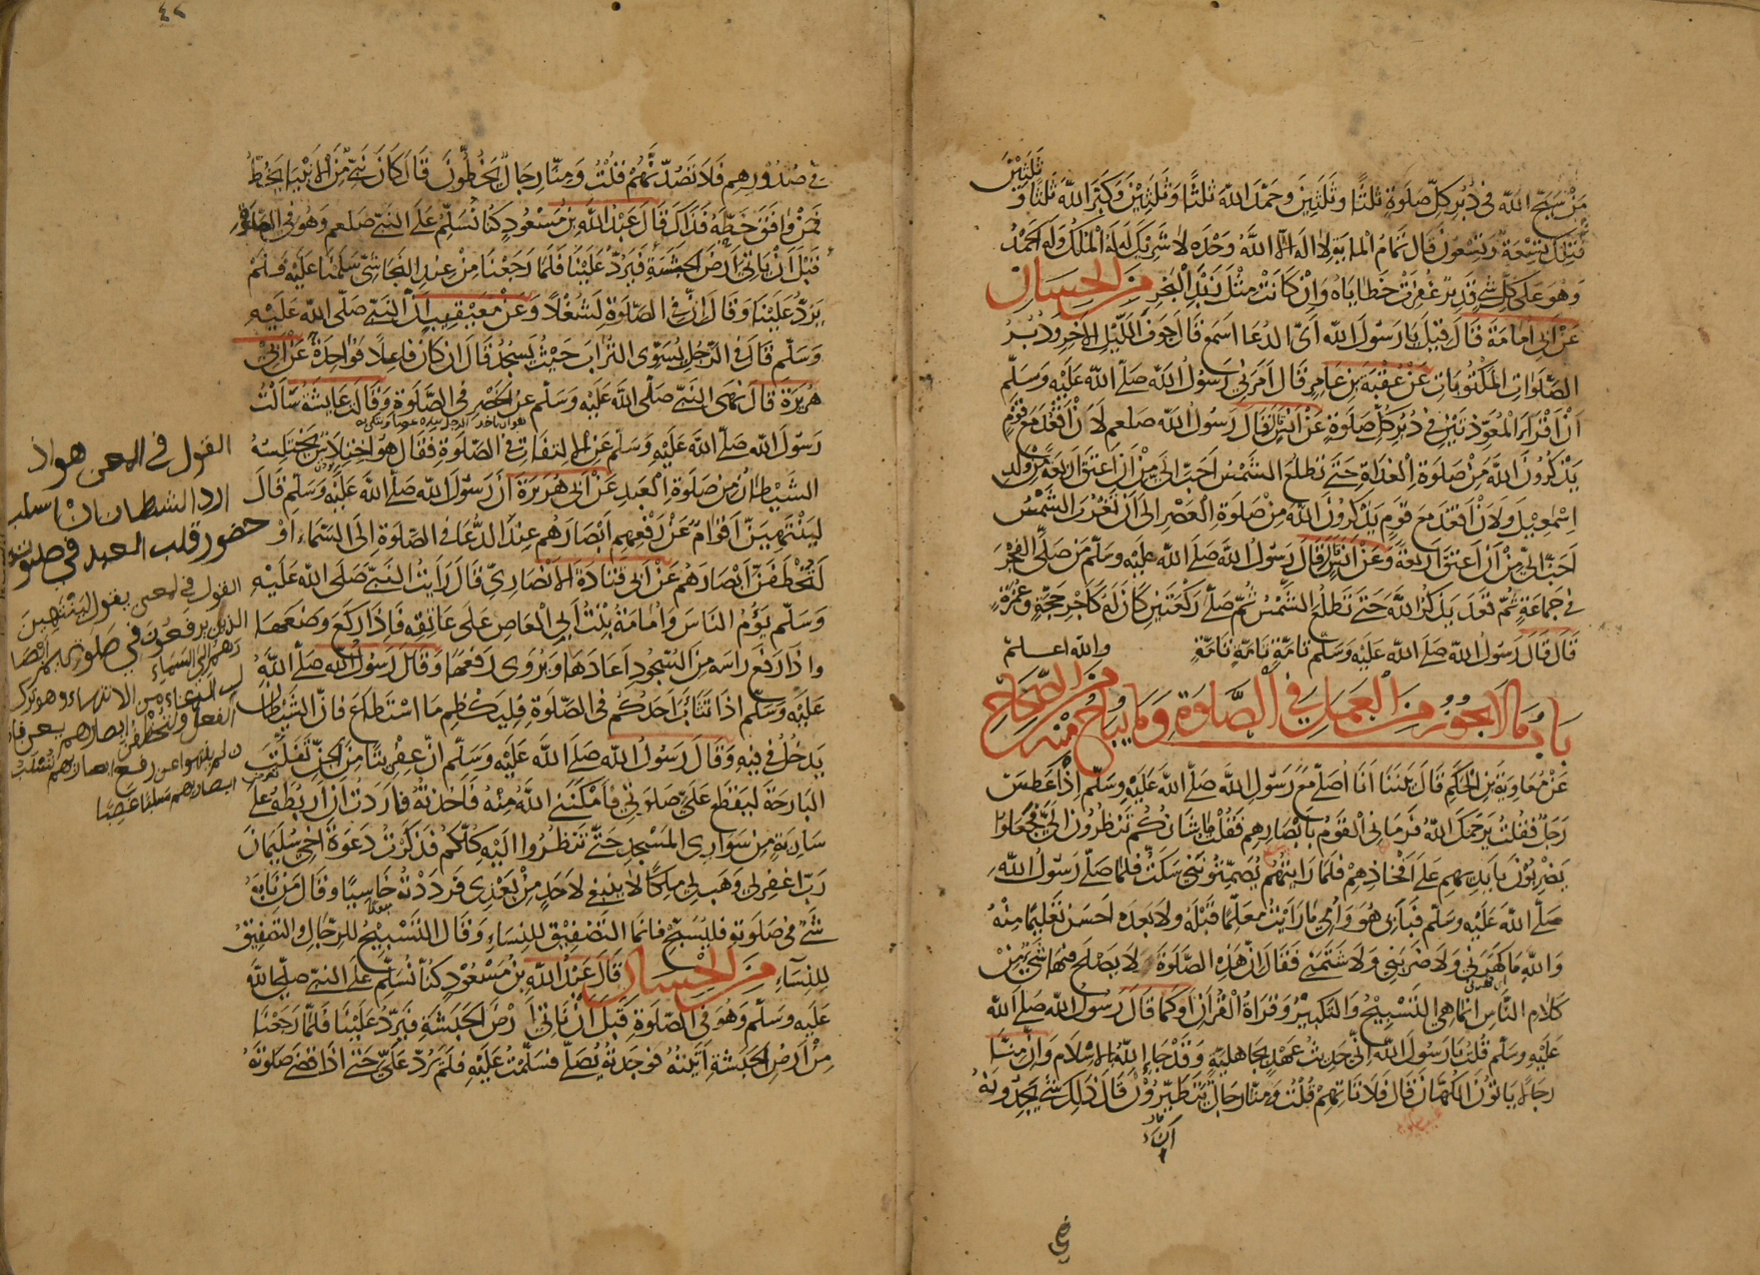 ثلثين
من سبح الله في دبر كل صلوة ثلثا وثلثين وحمد الله ثلثا وثلثين وكبر الله ثلثا و
فتلك تسعة وتسعون قال تمام الماية لا اله الا الله وحده لا شريك له له الملك وله الحمد
وهو على كل شي قدير غفرت خطاياه وان كانت مثل زبد البحر من الحسان
عن ابي امامة قال قيل يا رسول الله اي الدعا اسمع قال جوف الليل الاخر ودبر
الصلوات المكتوبات عن عقبة بن عامر قال امرني رسول الله صلى الله عليه وسلم
ان اقرا المعوذتين في دبر كل صلوة عن انس قال رسول الله صلعم لان اقعد مع قوم
يذكرون الله من صلوة الغداة حتى تطلع الشمس احب الي من ان اعتق اربعة من ولد
اسمعيل ولان اقعد مع قوم يذكرون الله من صلوة العصر الى ان تغرب الشمس
احب الي من ان اعتق اربعة وعن انس قال رسول الله صلى الله عليه وسلم من صلى الفجر
في جماعة ثم قعد يذكر الله حتى تطلع الشمس ثم صلى ركعتين كان له كاجر حجة وعمرة
قال قال رسول الله صلى الله عليه وسلم تامة تامة تامة والله اعلم
باب ما لا يجوز من العمل في الصلوة وما يباح منه من الصحاح
عن معاوية بن الحكم قال بينا انا اصلي مع رسول الله صلى الله عليه وسلم اذ عطس
رجل فقلت يرحمك الله فرماني القوم بابصارهم فقلت ما شانكم تنظرون الي فجعلوا
يضربون بايديهم على افخاذهم فلما رايتهم يصمتونني سكت فلما صلى رسول الله
صلى الله عليه وسلم فبابي هو وامي ما رايت معلما قبله ولا بعده احسن تعليما منه
والله ما كهرني ولا ضربني ولا شتمني فقال ان هذه الصلوة لا يصلح فيها شي من
كلام الناس انما هي التسبيح والتكبير وقراة القران او كما قال رسول الله صلى الله
عليه وسلم قلت يا رسول الله اني حديث عهد بجاهلية وقد جاء الله بالاسلام وان منا
رجالا ياتون الكهان قال فلا تاتهم قلت ومنا رجال يتطيرون قال ذلك شي يجدونه
في
في صدورهم فلا تصدنهم قلت ومنا رجال يخطون قال كان نبي من الانبيا يخط
فمن وافق خطه فذاك قال عبد الله بن مسعود كنا نسلم على النبي صلعم وهو في الصلوة
قبل ان ناتي ارض الحبشة فيرد علينا فلما رجعنا من عند النجاشي سلمنا عليه فلم
يرد علينا وقال ان في الصلوة لشغلا وعن معيقيب ان النبي صلى الله عليه
وسلم قال في الرجل يسوي التراب حيث يسجد قال ان كان فاعلا فواحدة عن ابي
هريرة قال نهى النبي صلى الله عليه وسلم عن الخصر في الصلوة وقالت عايشة سالت
رسول الله صلى الله عليه وسلم عن الالتفات في الصلوة فقال هو اختلاس يختلسه
الشيطان من صلوة العبد عن ابي هريرة ان رسول الله صلى الله عليه وسلم قال
لينتهين اقوام عن رفعهم ابصارهم عند الدعا في الصلوة الى السماء او
لتخطفن ابصارهم عن ابي قتادة الانصاري قال رايت النبي صلى الله عليه
وسلم يؤم الناس وامامة بنت ابي العاص على عاتقه فاذا ركع وضعها
واذا رفع راسه من السجود اعادها ويروى رفعها وقال رسول الله صلى الله
عليه وسلم اذا تثاب احدكم في الصلوة فليكظم ما استطاع فان الشيطان
يدخل في فيه وقال رسول الله صلى الله عليه وسلم ان عفريتا من الجن تفلت
البارحة ليقطع علي صلوتي فامكنني الله منه فاخذته فاردت ان اربطه على
سارية من سواري المسجد حتى تنظروا اليه كلكم فذكرت دعوة اخي سليمان
رب اغفر لي وهب لي ملكا لا ينبغي لاحد من بعدي فرددته خاسيا وقال من نابه
شي في صلوته فليسبح فانما التصفيق للنساء وقال التسبيح للرجال والتصفيق
للنساء من الحسان قال عبد الله بن مسعود كنا نسلم على النبي صلى الله
عليه وسلم وهو في الصلوة قبل ان ناتي ارض الحبشة فيرد علينا فلما رجعنا
من ارض الحبشة اتيته فوجدته يصلي فسلمت عليه فلم يرد علي حتى اذا قضى صلوته
القول في المعنى هو اذ
اراد الشيطان ان اسلب
حضور قلب العبد في صلوته
القول في المعنى يقول لينتهين
الذين يرفعون في صلوتهم